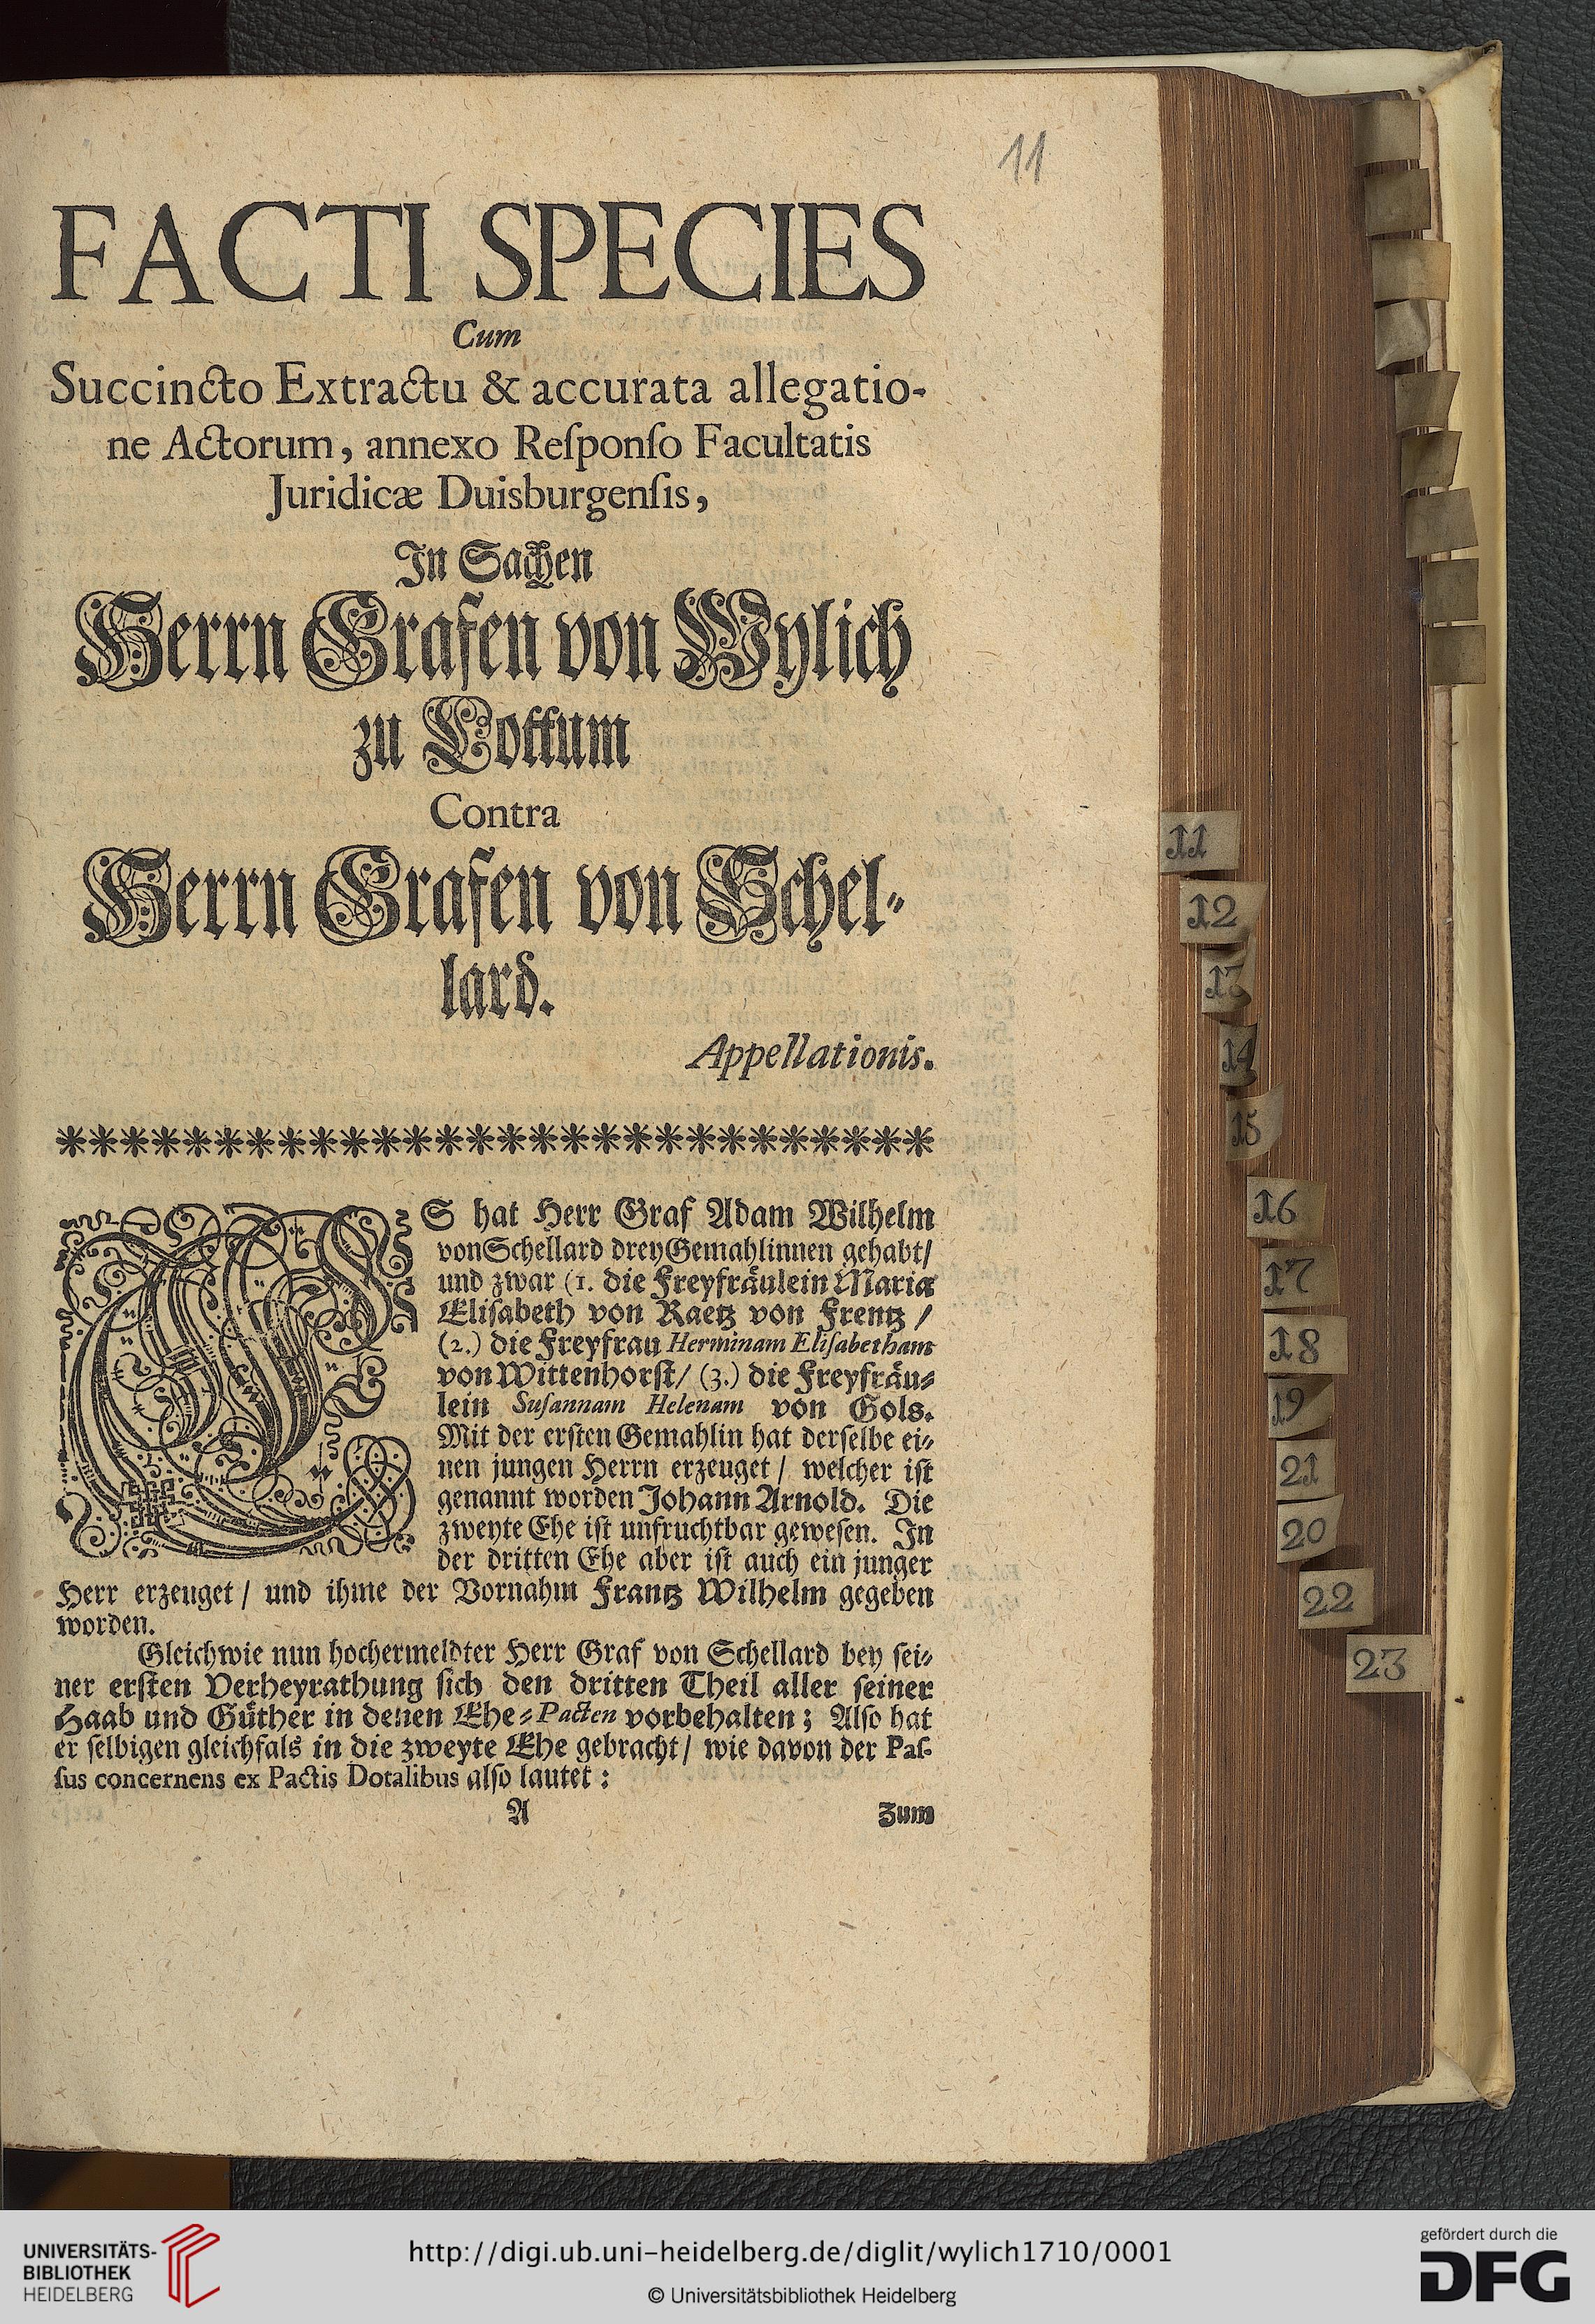 11
FACTI SPECIES
Cum
Succincto Extractu & accurata allegatio-
ne Actorum, annexo Reſponſo Facultatis
Juridicæ Duisburgenſis,
In Sachen
Herrn Grafen von Wylich
zu Lottum
Contra
Herrn Grafen von Schel-
lard.
Appellationis.
ES hat Herr Graf Adam Wilhelm
von Schellard drey Gemahlinnen gehabt/
und zwar (1. die Freyfräulein Maria
Eliſabeth von Raetz von Frentz /
(2.) die Freyfrau Herminam Eliſabetham
von Wittenhorſt/ (3.) die Freyfräu-
lein Suſannam Helenam von Gols.
Mit der erſten Gemahlin hat derſelbe ei-
nen jungen Herrn erzeuget / welcher iſt
genannt worden Johann Arnold. Die
zweyte Ehe iſt unfruchtbar geweſen. In
der dritten Ehe aber iſt auch ein junger
Herr erzeuget / und ihme der Vornahm Frantz Wilhelm gegeben
worden.
Gleichwie nun hochermeldter Herr Graf von Schellard bey ſei-
ner erſten Verheyrathung ſich den dritten Theil aller ſeiner
Haab und Güther in denen Ehe-Pacten vorbehalten; Alſo hat
er ſelbigen gleichfals in die zweyte Ehe gebracht/ wie davon der Paſ-
ſus concernens ex Pactis Dotalibus alſo lautet:
A
Zum
11
12
13
14
15
16
17
18
19
21
20
22
23
UNIVERSITÄTS-
BIBLIOTHEK
HEIDELBERG
http://digi.ub.uni-heidelberg.de/diglit/wylich1710/0001
© Universitätsbibliothek Heidelberg
gefördert durch die
DFG